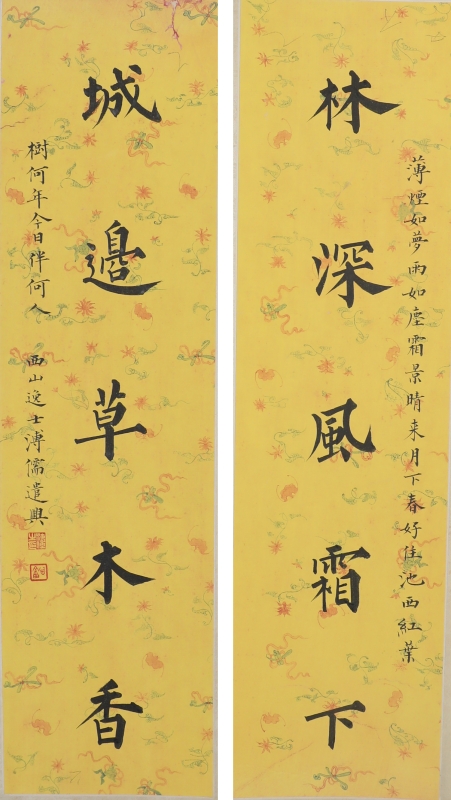 林深風霜下
薄煙如夢雨如塵霜景晴来月下春好住池西紅葉
城邊草木香
樹何年今日伴何人
西山逸士溥儒遣興